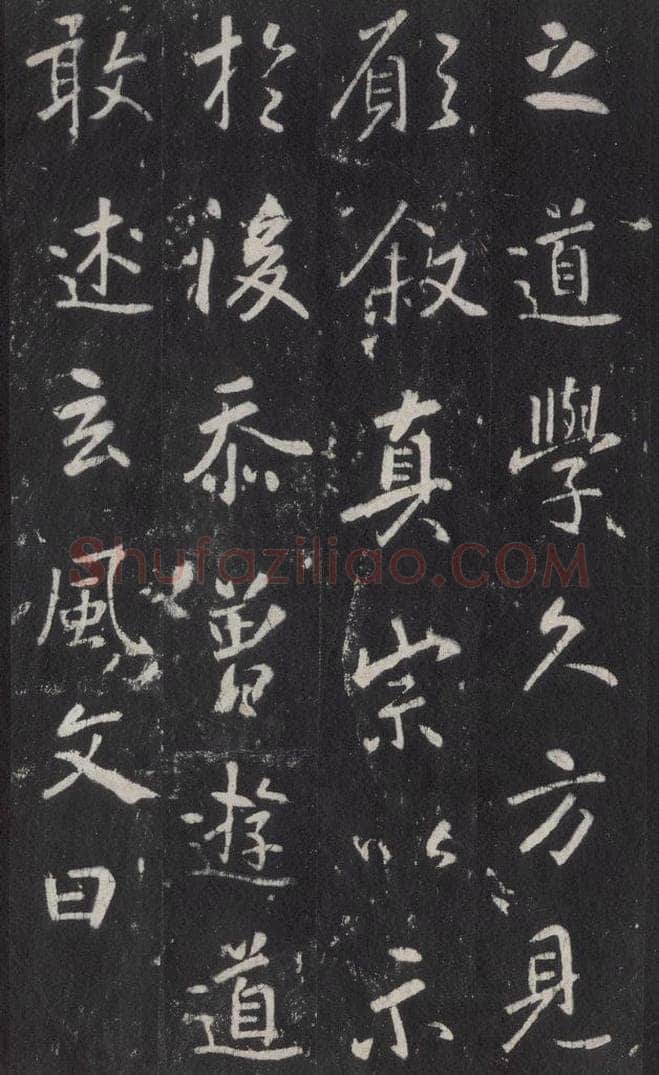 之道學久方見
願叙真宗以示
於後忝曾遊道
敢述玄風文曰
Shufaziliao.COM